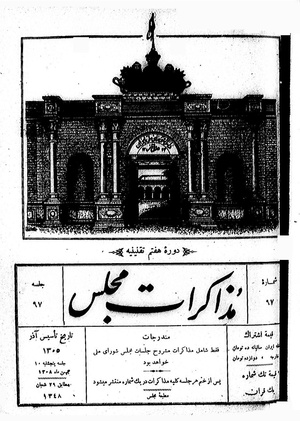 دورهٔ هفتم تقنینیه
شماره
۹۷
مذاکرات مجلس
جلسه
۹۷
قیمة اشتراک
قیمة تک شماره
یک قران
مندرجات
فقط شامل مذاکرات مشروح جلسات مجلس شورای ملی
خواهد بود
پس از ختم هر جلسه کلیه مذاکرات در یک شماره منتشر میشود
مطبعهٔ مجلس
تاریخ تأسیس آذر
۱۳۰۵
جلسه پنجشنبه ۱۰
بهمن ماه ۱۳۰۸
مطابق ۲۹ شعبان
۱۳۴۸